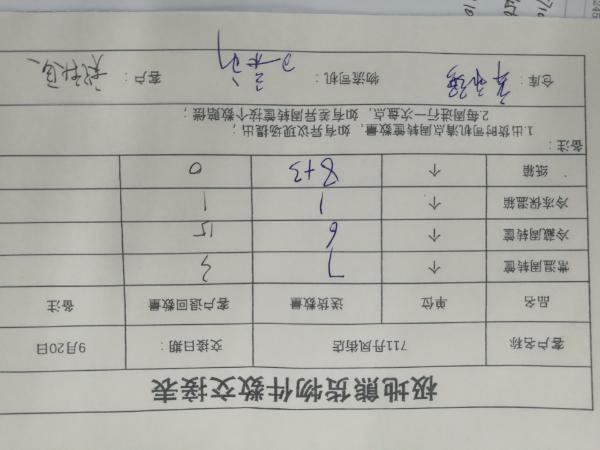 极地熊货物件数交接表
客户名称 711丹凤街店 交接日期： 9月20日
品名 单位 送货数量 客户退回数量 备注
常温周转筐 个 7 3
冷藏周转筐 个 6 15
冷冻保温箱 个 1 1
纸箱 个 8+3 0
备注：
1.出货时司机清点周转筐数量，如有异议现场提出；
2.每周进行一次盘点，如有差异周转筐按个数赔偿；
仓库： 物流司机： 客户：